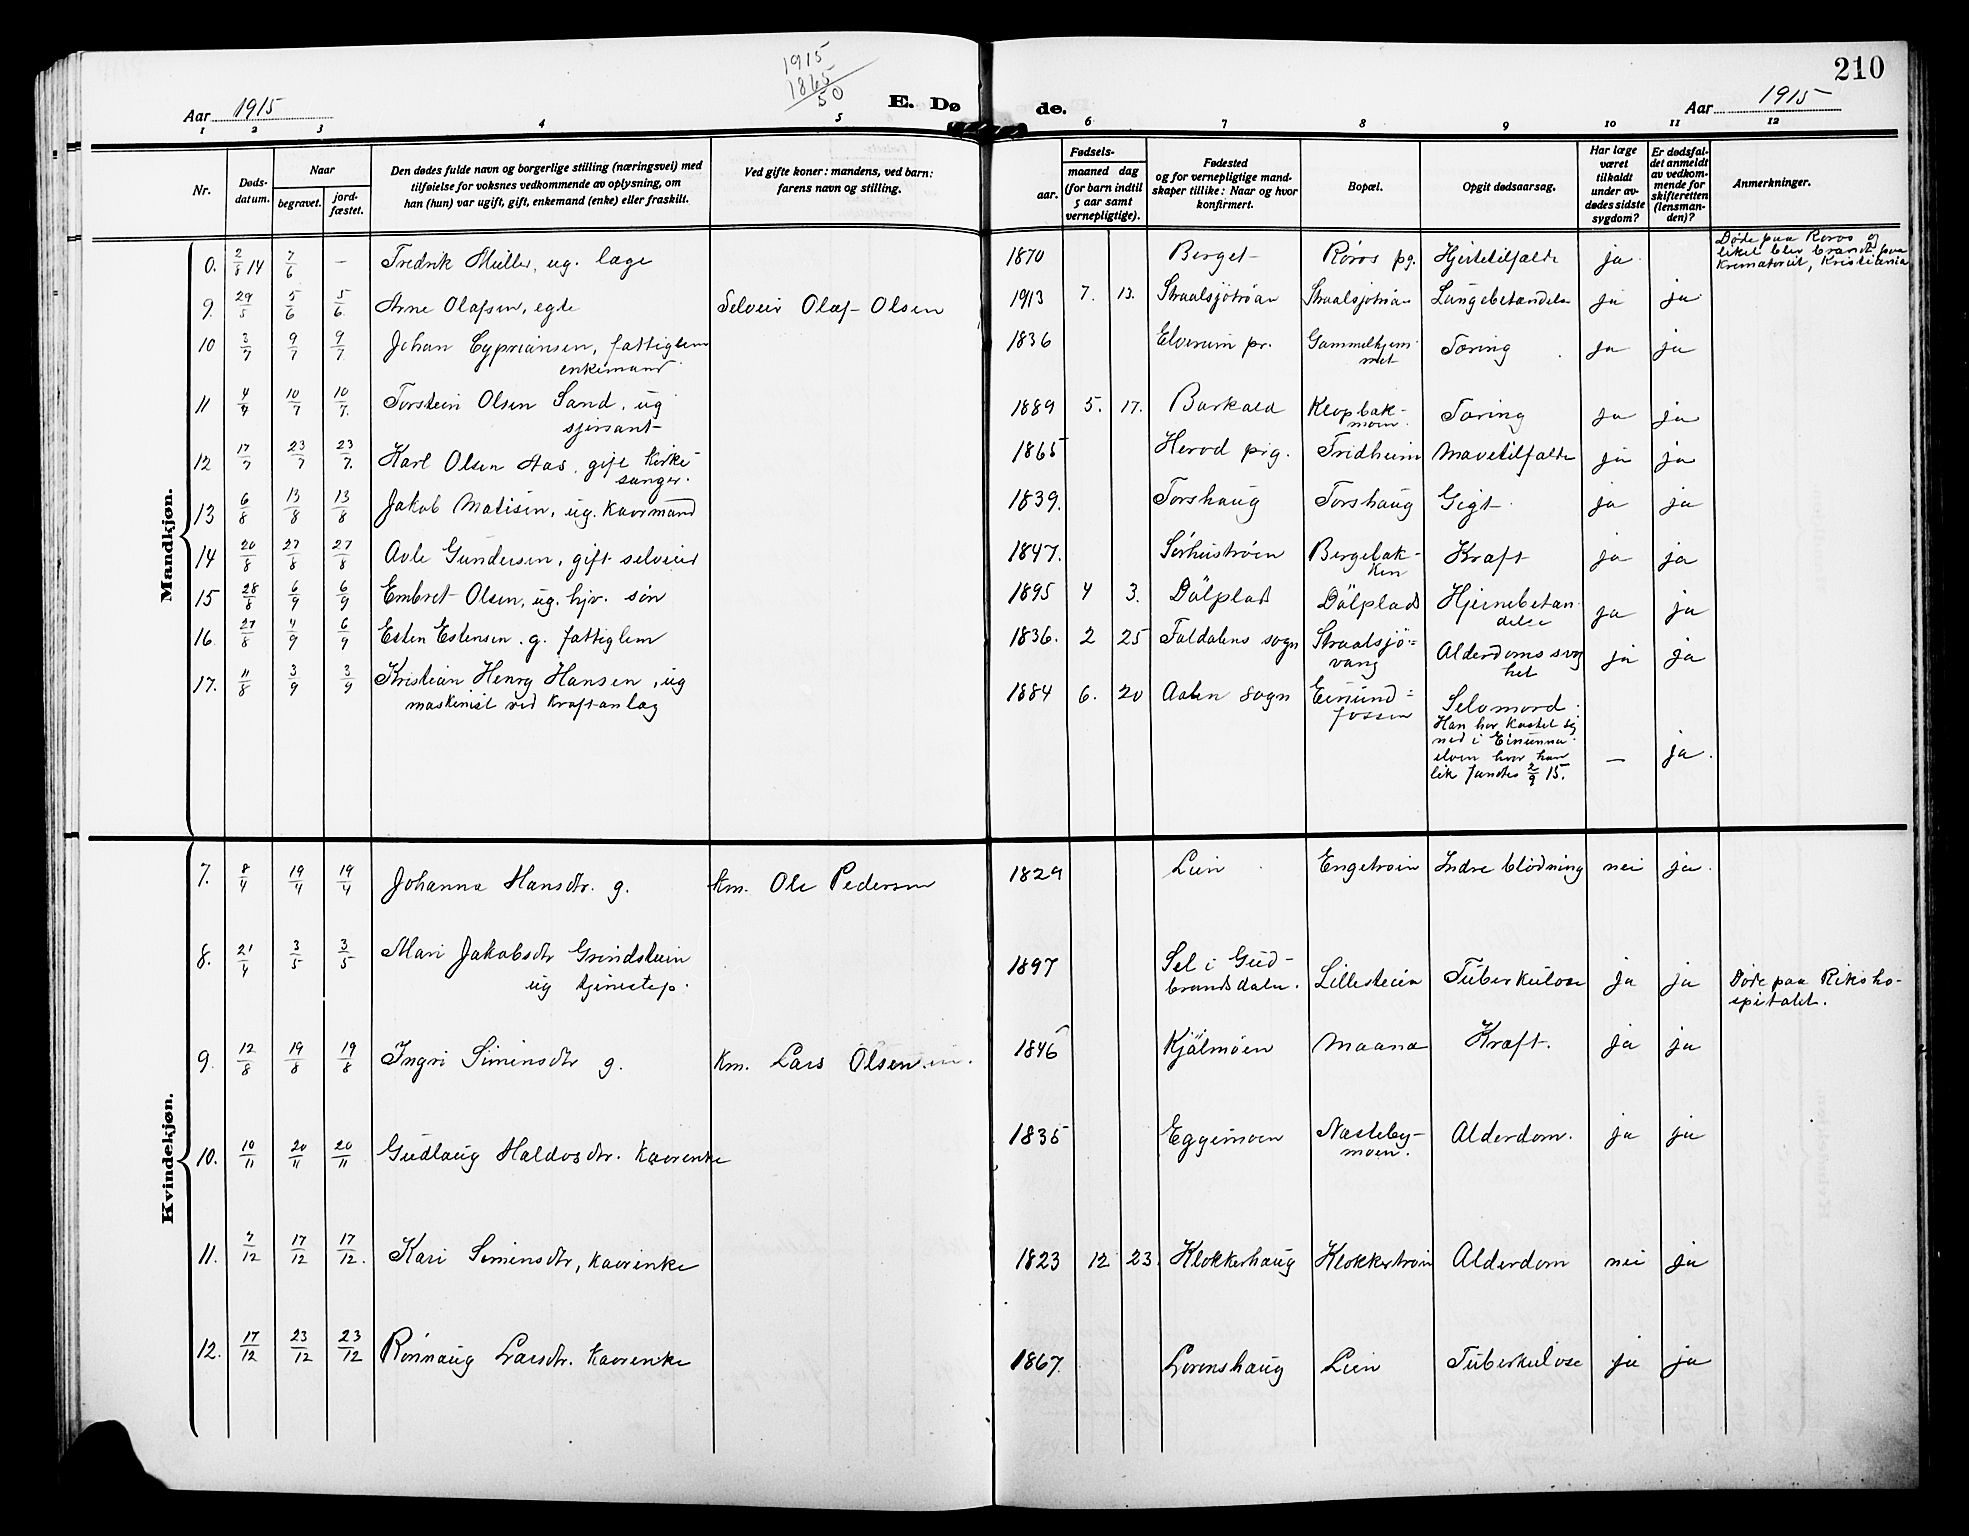 210
1915
1865
50
Aar 1915
E. Dø de.
Aar 1915
1 2 3 4 5 6 7 8 9 10 11 12
Nr.
Døds-
datum.
Naar
begravet.
jord-
fæstet.
Den dødes fulde navn og borgerlige stilling (næringsvei) med
tilføielse for voksnes vedkommende av oplysning, om
han (hun) var ugift, gift, enkemand (enke) eller fraskilt.
Ved gifte koner: mandens, ved barn:
farens navn og stilling.
Fødsels-
aar.
maaned dag
(for barn indtil
5 aar samt
vernepligtige).
Fødested
og for vernepligtige mand-
skaper tillike: Naar og hvor
konfirmert.
Bopæl.
Opgit dødsaarsag.
Har læge
været
tilkaldt
under av-
dødes sidste
sygdom?
Er dødsfal-
det anmeldt
av vedkom-
mende for
skifteretten
(lensman-
den)?
Anmerkninger.
Mandkjøn.
0. 2/8 14 7/6 — Fredrik Müller, ug. læge 1870 Berget Røros pg. Hjertetilfælde ja
Døde paa Røros og
liket blev brændt paa
Krematoriet, Kristiania
9. 29/5 5/6 5/6 Arne Olafsen, egte Selveier Olaf Olsen 1913 7. 13. Straalsjøtrøan Straalsjøtrøan Lungebetændelse ja ja
10 3/7 9/7 9/7 Johan Cypriansen, fattiglem
enkemand 1836 Elverum pr. Gammelhjem-
met Tæring ja ja
11 4/7 10/7 10/7. Torstein Olsen Sand, ug
sjersant 1889 5. 17. Barkald Klopbak-
moen. Tæring ja ja
12 17/7 23/7 23/7. Karl Olsen Aas, gift kirke-
sanger. 1865 Herød prg. Fridheim Mavetilfælde ja ja
13 6/8 13/8 13/8 Jakob Matisen, ug. kaarmand 1839. Torshaug Torshaug Gigt ja ja
14 20/8 27/8 27/8 Gundersen, gift selveier 1847. Sørhustrøen Bergebak-
ken Kræft ja ja
15 28/8 6/9 6/9 Embret Olsen, ug. hjv. søn 1895 4 3. Dölplads Dölplads Hjernebetæn-
delse ja ja
16. 27/8 4/9 6/9 Esten Estensen. g. fattiglem 1836. 2 25 Foldalens sogn Straalsjö-
vang Alderdomssvag
het ja ja
17. 11/8 3/9 3/9 Kristian Henry Hansen, ug
maskinist ved Kraftanlæg 1884 6. 20 Aalen sogn Einund-
fossen Selvmord.
Han har kastet sig
ned i Einunna-
elven hvor han
lik fandtes 2/9 15. — ja.
Kvindekjøn.
7. 8/4 19/4 19/4 Johanna Hansdtr. g. km. Ole Pedersen 1829 Lien Engetrøen Indre blödning nei ja.
8. 21/4 3/5 3/5 Mari Jakobsdtr Grindstuen
ug tjenestep. 1897 Sel i Gud-
brandsdalen. Lillesteien Tuberkulose ja ja Døde paa Riksho-
spitalet.
9. 12/8 19/8 19/8 Ingri Simensdtr g. km. Lars Olsen 1846 Kjølmöen Maana Kræft. ja ja
10. 10/11 20/11 20/11 Gudlaug Haldosdtr. Kaarenke 1835 Eggemoen Næsteby-
moen. Alderdom. ja ja
11. 7/12 17/12 17/12. Kari Simensdtr, kaarenke 1823 12 23. Klokkerhaug Klokkertrøen Alderdom nei ja
12. 17/12 23/12 23/12 Rønnaug Larsdtr. Kaarenke 1867. Lorenshaug Lien Tuberkulose ja ja